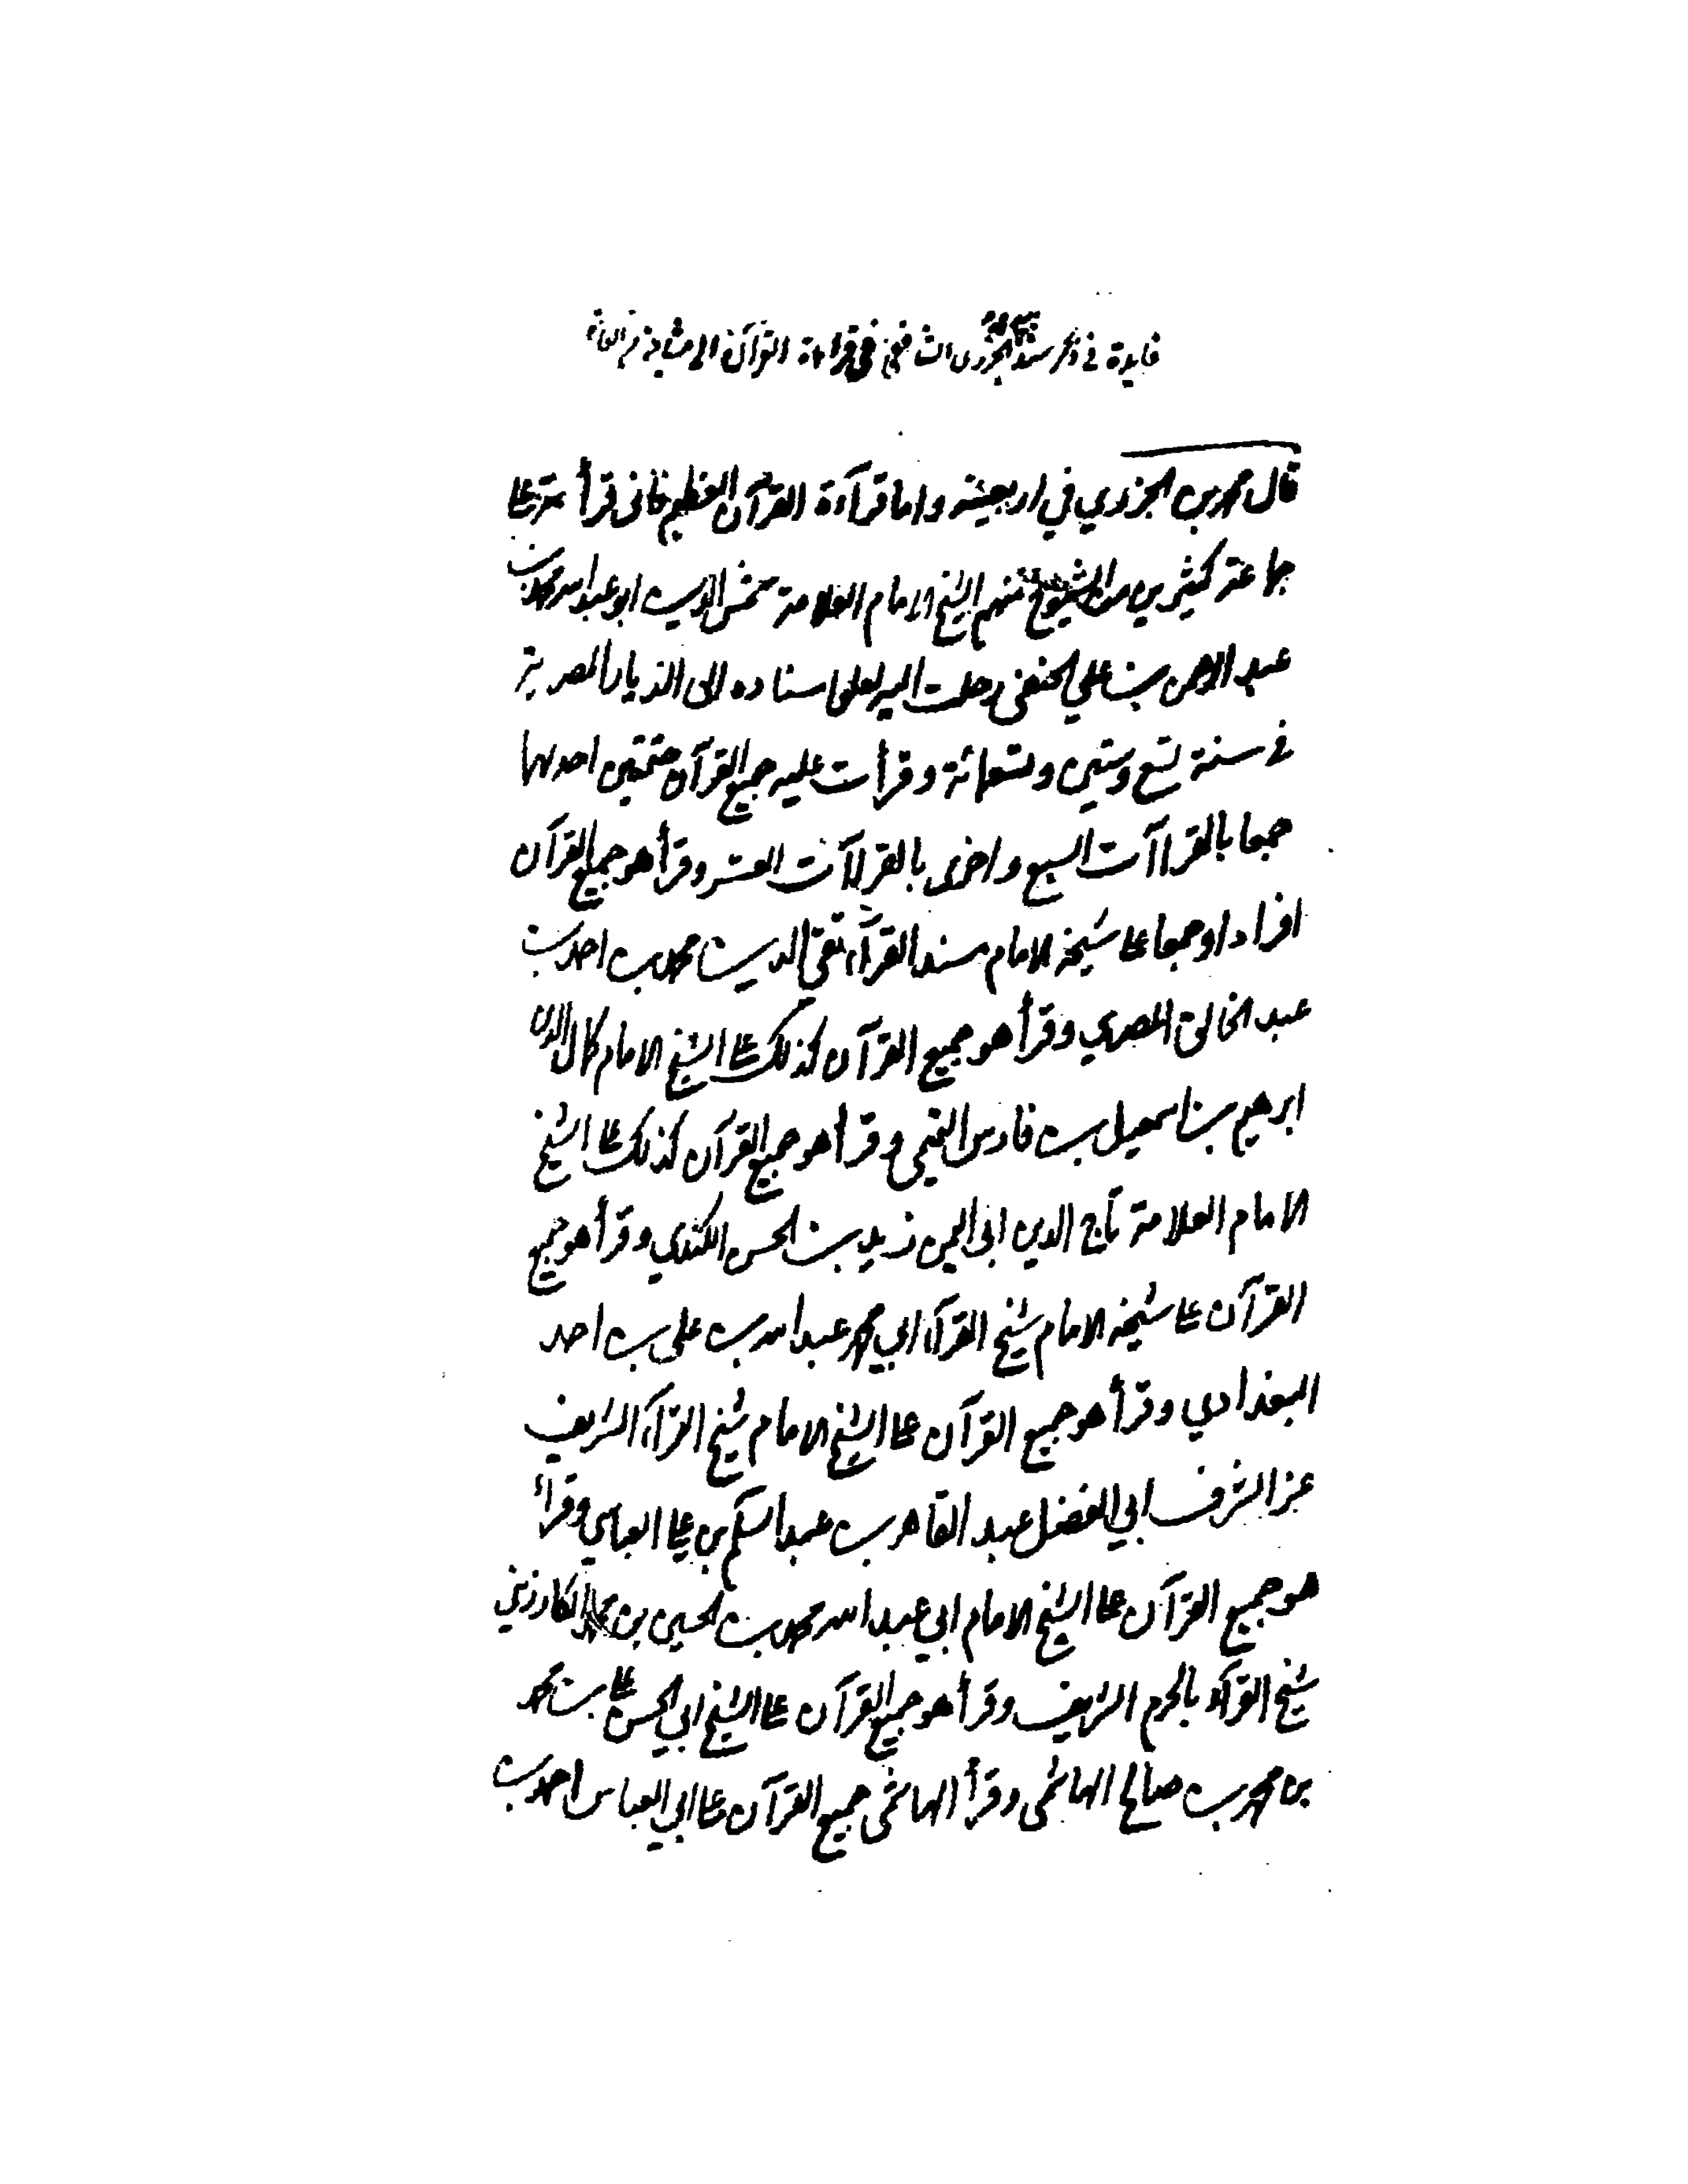 فايدة في ذكر سند الجزري الشافعي في قراءة القرآن
قال محمد بن الجزري في اربعينه واما قرآءة القرآن العظيم فاني قرأته على
جماعة كثيرين من الشيوخ منهم الشيخ الامام العلامة شمس الدين ابو عبد الله محمد بن
عبد الرحمن بن علي الحنفي رحلت اليه لعلو اسناده الى الديار المصرية
في سنة تسع وستين وتسعمائة وقرأت عليه جميع القرآن ختمتين احدىهما
جمعا بالقراآت السبع واخرى بالقراآت العشر وقرأ هو جميع القرآن
افرادا وجمعا على شيخه الامام مسند القرآء تقي الدين محمد بن احمد بن
عبد الخالق المصري وقرأ هو جميع القرآن كذلك على الشيخ الامام كمال الدين
ابرهيم بن اسمعيل بن فارس التميمي وقرأ هو جميع القرآن كذلك على الشيخ
الامام العلامة تاج الدين ابي اليمن زيد بن الحسن الكندي وقرأ هو جميع
القرآن على شيخه الامام شيخ القرآء ابي محمد عبد الله بن على بن احمد
البغدادي وقرأ هو جميع القرآن على الشيخ الامام شيخ القرآء الشريف
عز الشرف ابي الفضل عبد القاهر بن عبد السلم بن على العباسي وقرأ
هو جميع القرآن على الشيخ الامام ابي عبد الله محمد بن الحسين بن محمد الكارزيني
شيخ القرآء بالحرم الشريف وقرأ هو جميع القرآن على الشيخ ابي الحسن على بن محمد
بن محمد بن صالح الهاشمى وقرأ الهاشمى جميع القرآن على ابي العباس احمد بن